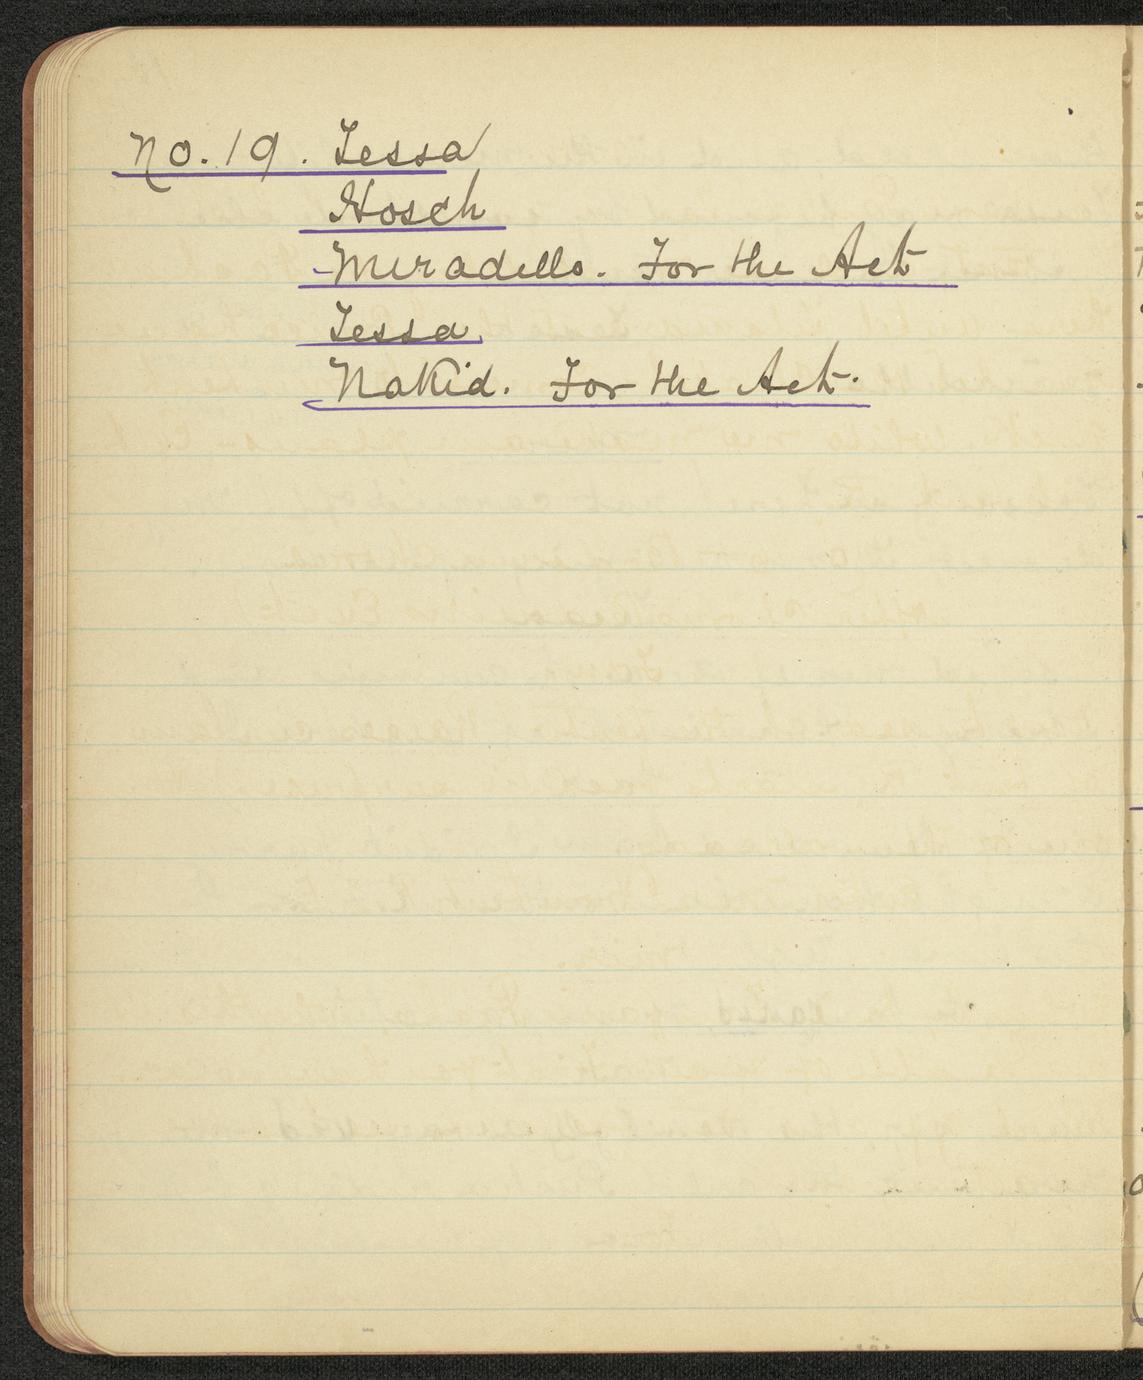 No. 19. Tessa
Hosch
Miradello. For the Act
Tessa.
Nakid. For the Act.